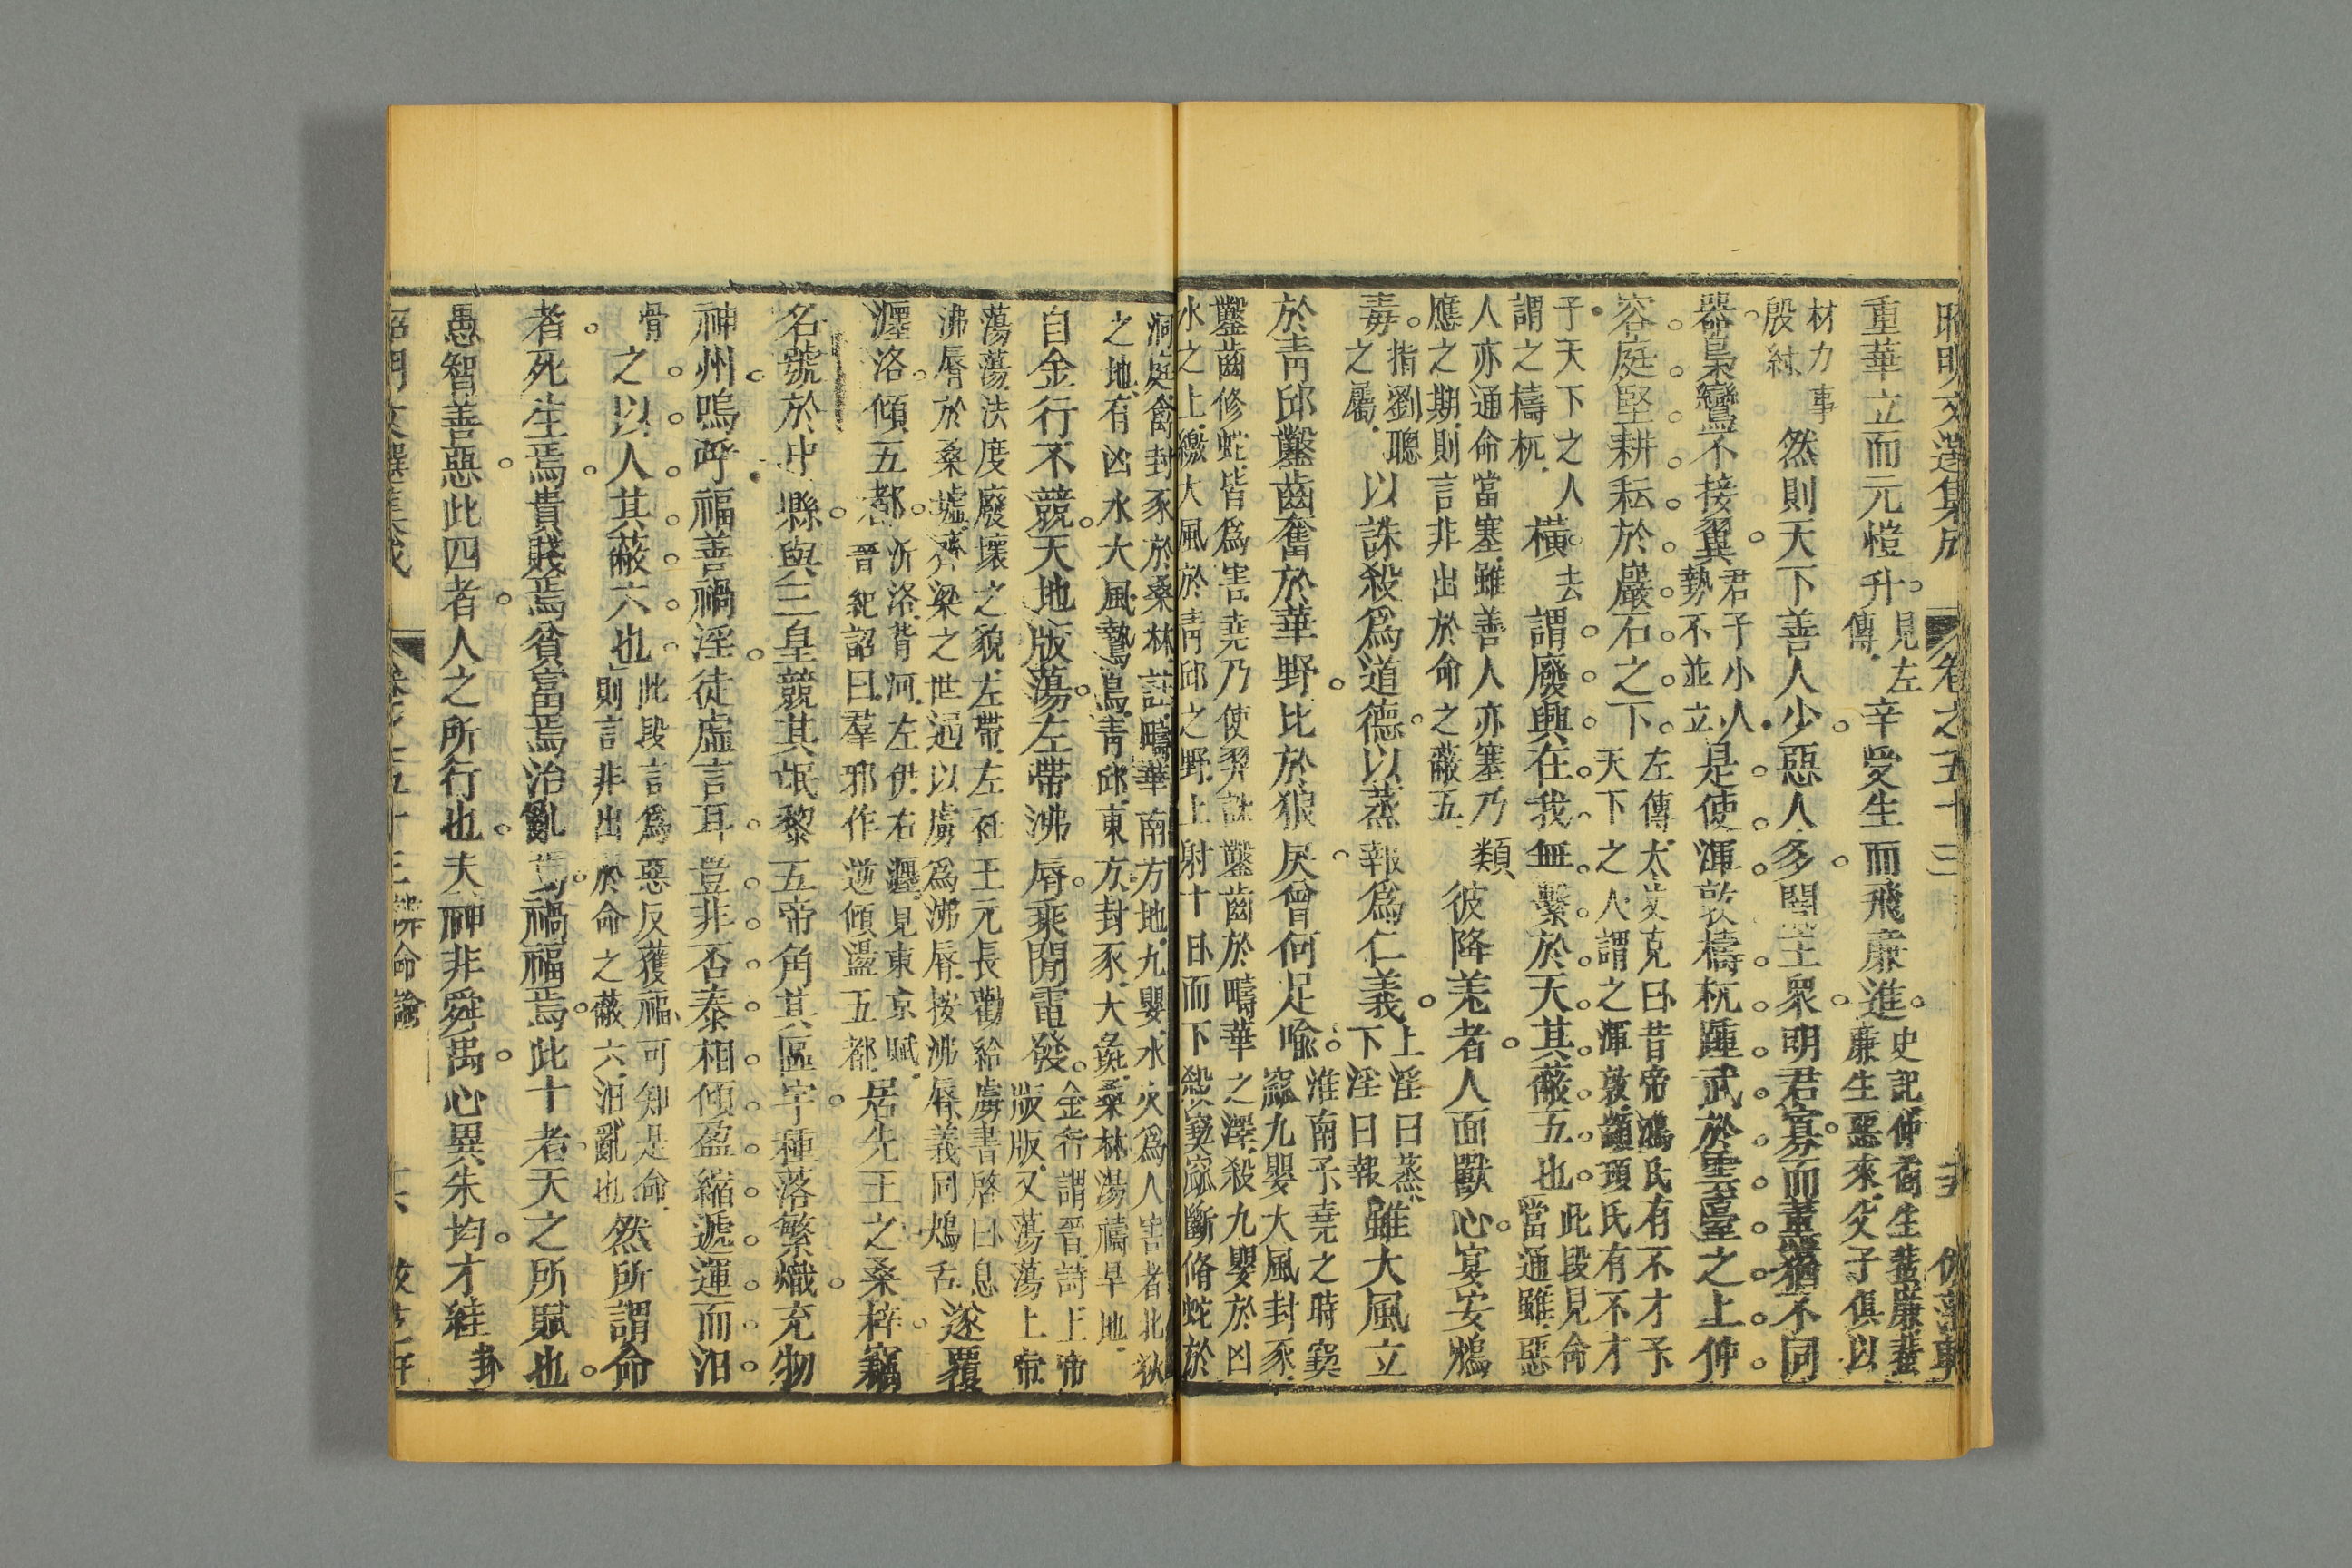 昭明文選集成 卷之五十三
重華立而元愷升見左傳辛受生而飛廉進史記仲衍生蜚廉蜚廉生惡來父子俱以
材力事殷紂然則天下善人少惡人多闇主衆明君寡而薰蕕不同
器梟鸞不接翼君子小人勢不並立是使渾敦檮杌踵武於雲臺之上仲
容庭堅耕耘於巖石之下左傳太史克曰昔帝鴻氏有不才子天下之人謂之渾敦顓頊氏有不才
子天下之人謂之檮杌橫去謂廢興在我無繫於天其蔽五也此段見命當通雖惡
人亦通命當塞雖善人亦塞乃應之期則言非出於命之蔽五類彼降羌者人面獸心宴安鴆
毒指劉聰之屬以誅殺爲道德以蒸報爲仁義上淫曰蒸下淫曰報雖大風立
於青邱鑿齒奮於華野比於狼戾曾何足喻淮南子堯之時窫窳九嬰大風封豕
鑿齒修蛇皆爲害堯乃使羿誅鑿齒於疇華之澤殺九嬰於凶水之上繳大風於青邱之野上射十日而下殺窫窳斷脩蛇於
洞庭禽封豕於桑林註疇華南方地九嬰水火爲人害者北狄之地有凶水大風鷙鳥青邱東方封豕大彘桑林湯禱旱地
自金行不競天地版蕩左帶沸脣乘閒電發金行謂晉詩上帝版版又蕩蕩上帝
蕩蕩法度廢壞之貌左帶左衽王元長勸給虜書啓曰息沸脣於桑墟齊梁之世通以虜爲沸脣按沸脣義同鴂舌遂覆
瀍洛傾五都泝洛背河左伊右瀍見東京賦晉紀詔曰羣邪作逆傾盪五都居先王之桑梓竊
名號於中縣與三皇競其氓黎五帝角其區宇種落繁熾充牣
神州嗚呼福善禍淫徒虛言耳豈非否泰相傾盈縮遞運而汨
骨之以人其蔽六也此段言爲惡反獲福可知是命則言非出於命之蔽六汨亂也然所謂命
者死生焉貴賤焉貧富焉治亂焉禍福焉此十者天之所賦也
愚智善惡此四者人之所行也夫神非舜禹心異朱均才絓卦
昭明文選集成 卷之五十三辨命論